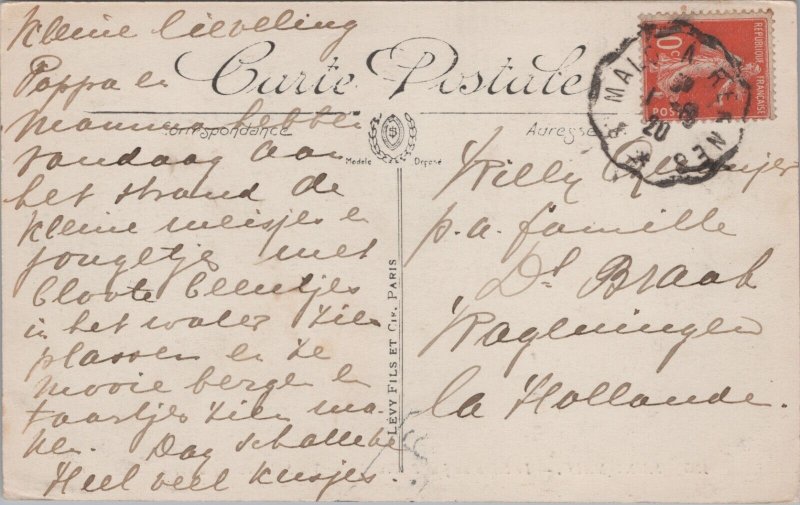 Carte Postale
Correspondance
Adresse
Modèle Déposé
LÉVY FILS ET CIE, PARIS
Kleine lieveling
Pappa en
Mamma hebben
vandaag aan
het strand de
kleine meisjes en
jongetjes met
bloote beentjes
in het water zien
plassen en ze
mooie bergen en
taartjes zien ma-
ken. Dag schattebe
Heel veel kusjes.
Willy
p.a. familie
Dr Braak
Wageningen
la Hollande.
RÉPUBLIQUE FRANÇAISE
10c
POSTES
20